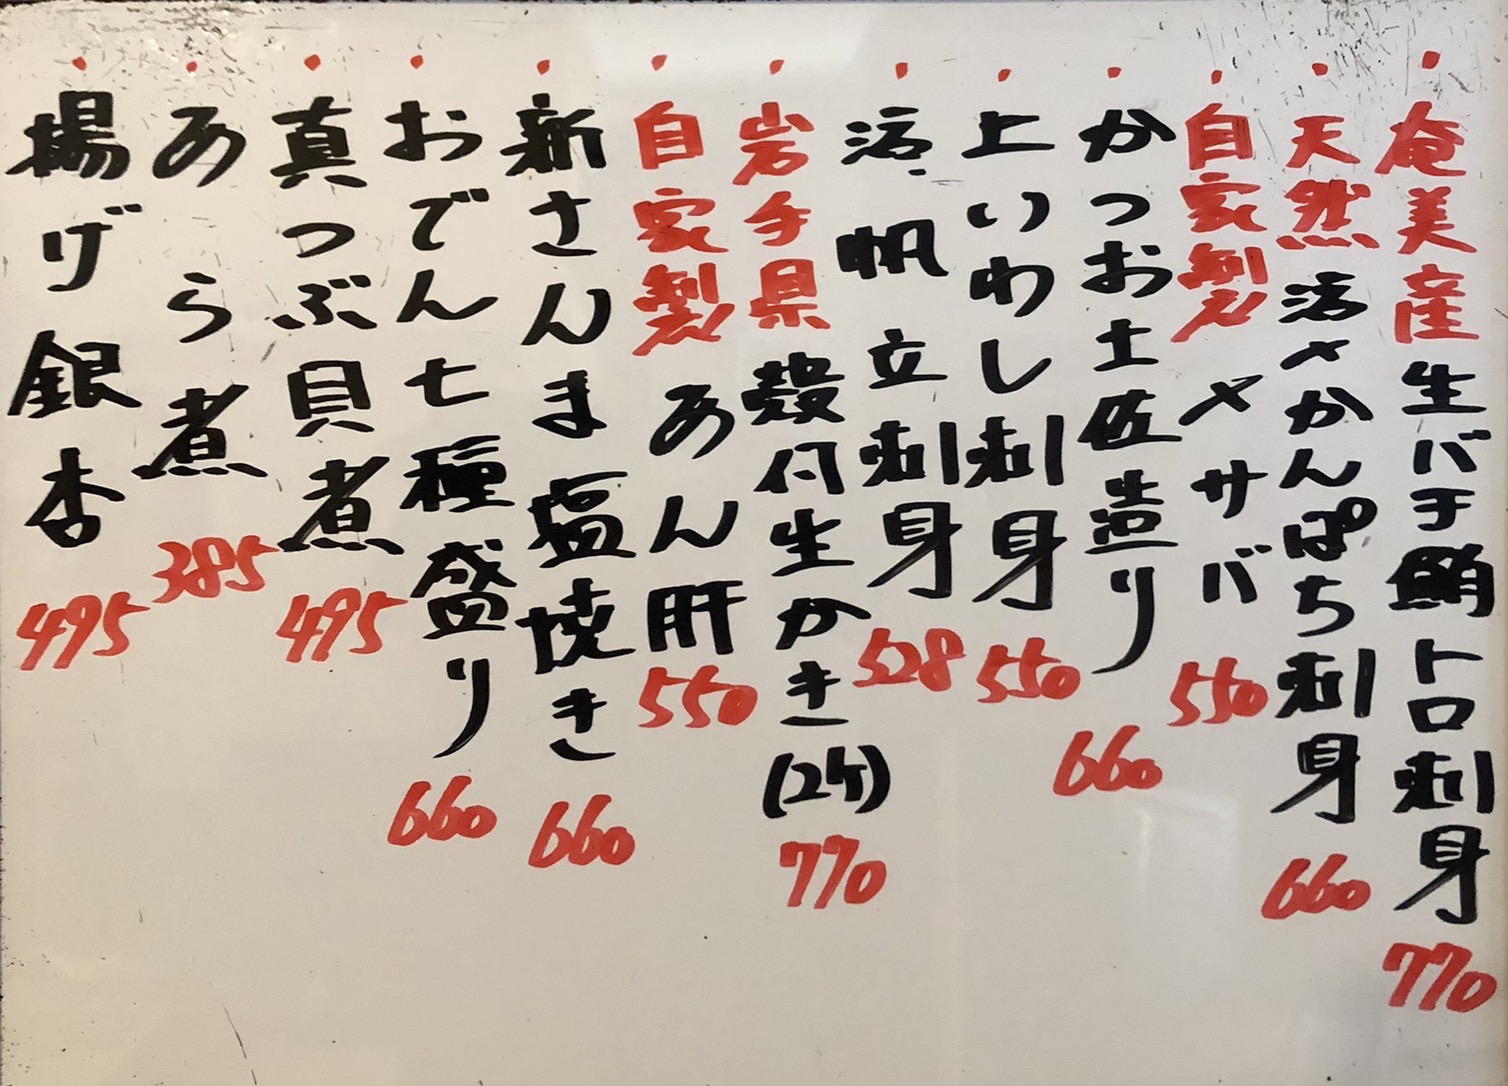 ・奄美産生バチ鮪トロ刺身 770
・天然活〆かんぱち刺身 660
・自家製〆サバ 550
・かつお土佐造り 660
・上いわし刺身 550
・活帆立刺身 528
・岩手県殻付生かき(2ケ) 770
・自家製あん肝 550
・新さんま塩焼き 660
・おでん七種盛り 660
・真つぶ貝煮 495
・あら煮 385
・揚げ銀杏 495